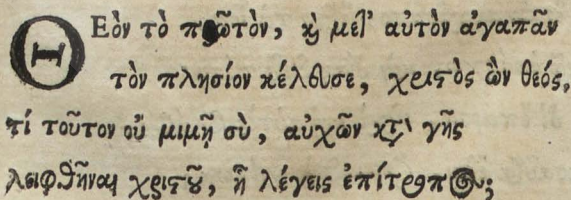 ΘΕὸν τὸ πρῶτον, ϗ μετ' αὐτὸν ἀγαπᾶν
τὸν πλησίον κέλευσε, χριστὸς ὢν θεός,
τί τοῦτον οὐ μιμῇ σὺ, αὐχῶν κατὰ γῆς
λειφθῆναι χριστοῦ, ἢ λέγεις ἐπίτροπος;